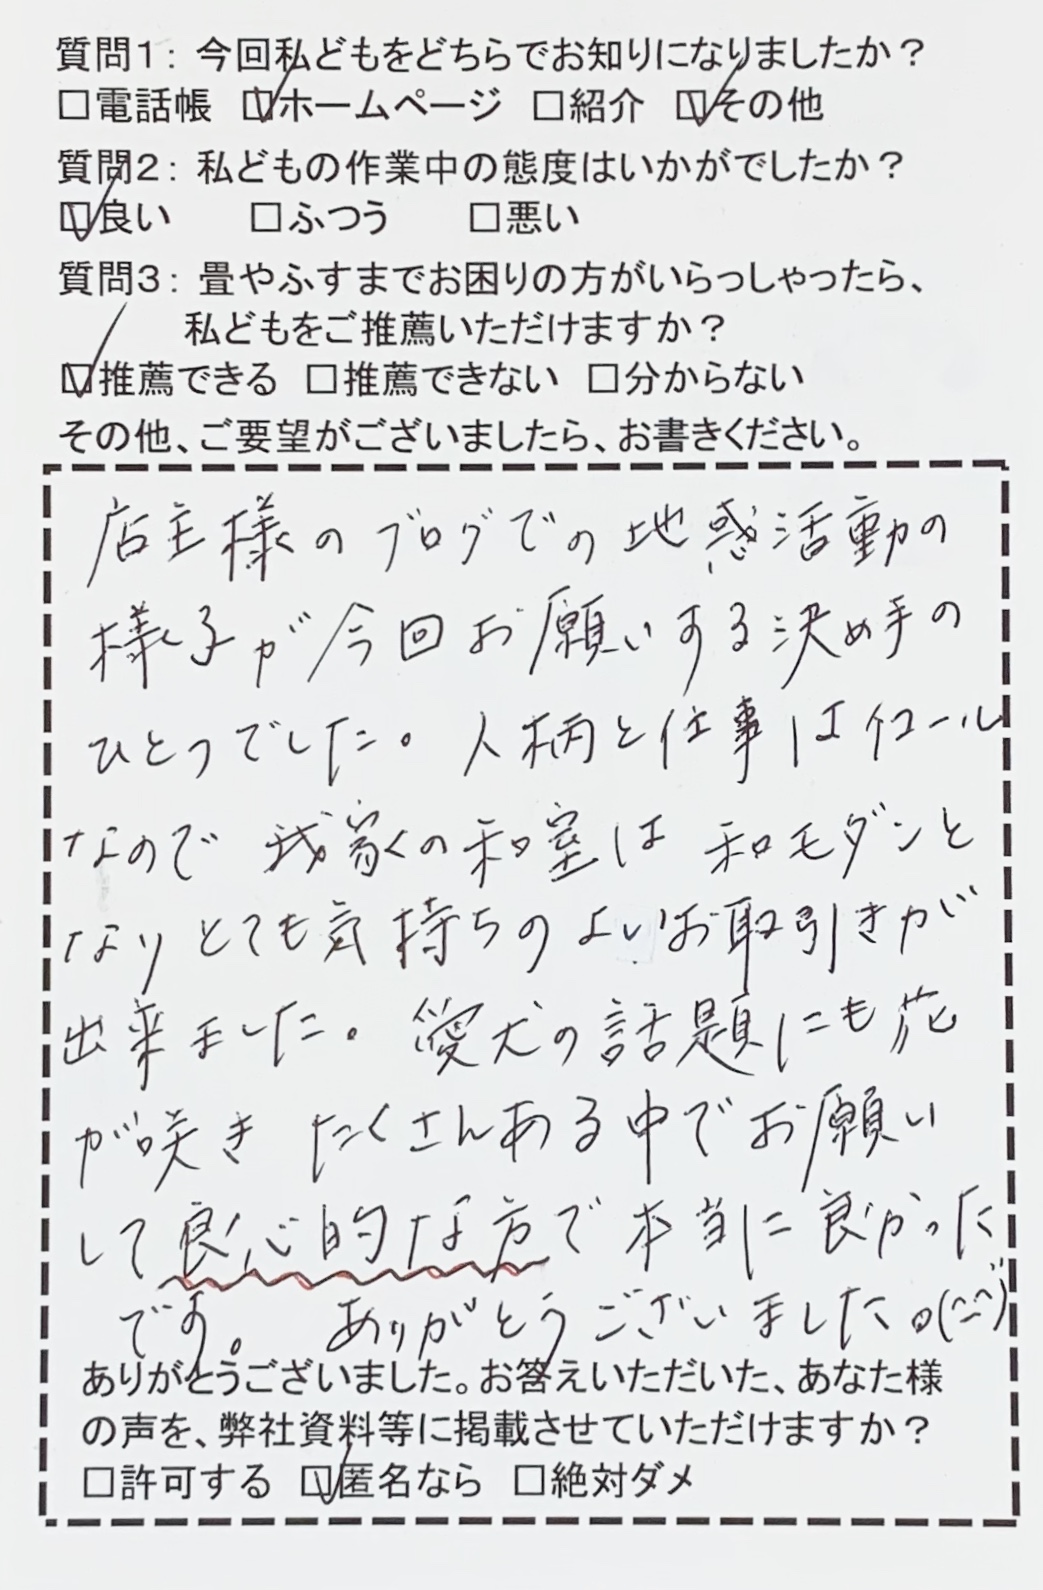 質問1：今回私どもをどちらでお知りになりましたか？
□電話帳 ☑ホームページ □紹介 ☑その他
質問2：私どもの作業中の態度はいかがでしたか？
☑良い □ふつう □悪い
質問3：畳やふすまでお困りの方がいらっしゃったら、
私どもをご推薦いただけますか？
☑推薦できる □推薦できない □分からない
その他、ご要望がございましたら、お書きください。
店主様のブログでの地惑活動の
様子が今回お願いする決め手の
ひとつでした。人柄と仕事はイコール
なので我家の和室は和モダンと
なりとても気持ちのよいお取引きが
出来ました。愛犬の話題にも花
が咲きたくさんある中でお願い
して良心的な方で本当に良かった
です。ありがとうございました。(^-^)
ありがとうございました。お答えいただいた、あなた様
の声を、弊社資料等に掲載させていただけますか？
□許可する ☑匿名なら □絶対ダメ